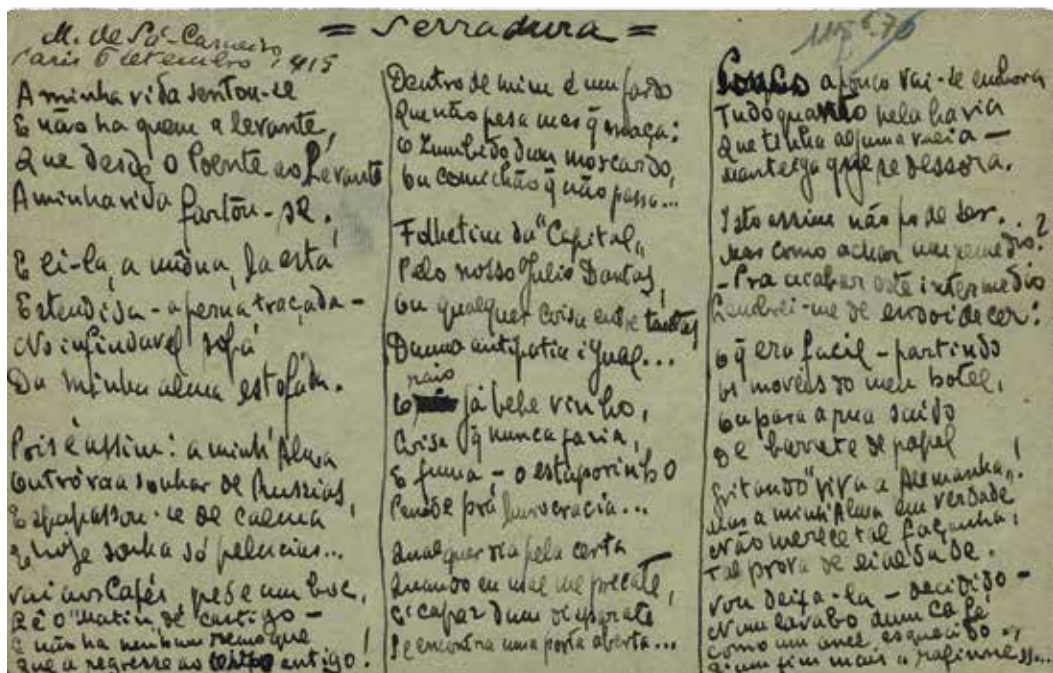 = Serradura =
M. de Sá-Carneiro
Paris 6 setembro 1915
A minha vida sentou-se
E não ha quem a levante,
Que desde o Poente ao Levante
A minha vida fartou-se.
E ei-la, a mona, la está
Estendida - a perna traçada -
No infindavel sofá
Da minha alma estofada.
Pois é assim: a minh'Alma
Outróra a sonhar de Russias,
Espapassou-se de calma
E hoje sonha só pelucias...
Vai aos Cafés, pede um boc,
Lê o "Matin" de castigo -
E não ha nenhum remoque
Que a regresse ao tempo antigo!
Dentro de mim é um fardo
Que não pesa mas q̃ maça:
O Zumbido dum moscardo,
Ou comichão q̃ não passa...
Folhetim da "Capital"
Pelo nosso Julio Dantas,
Ou qualquer coisa entre tantas
Duma antipatia igual...
O raio já bebe vinho,
Coisa q̃ nunca fazia,
E fuma - o estuporinho
Pende prá burocracia...
Qualquer dia pela certa
Quando eu mal me precate,
É capaz dum disparate
Se encontra uma porta aberta...
115⁶-76
Pouco a pouco vai-se embora
Tudo quanto nela havia
Que tinha alguma valia -
Manteiga q̃ se dessora.
Isto assim não pode ser...
Mas como achar um remedio?
- Pra acabar este intermedio
Lembrei-me de endoidecer:
O q̃ era facil - partindo
Os moveis do meu hotel,
Ou para a rua saindo
De barrete de papel
Gritando "viva a Alemanha"!
Mas a minh'Alma em verdade
Não merece tal façanha,
Tal prova de lealdade.
Vou deixa-la - decidido -
No lavabo dum Café
Como um anel esquecido.
É um fim mais raffiné...